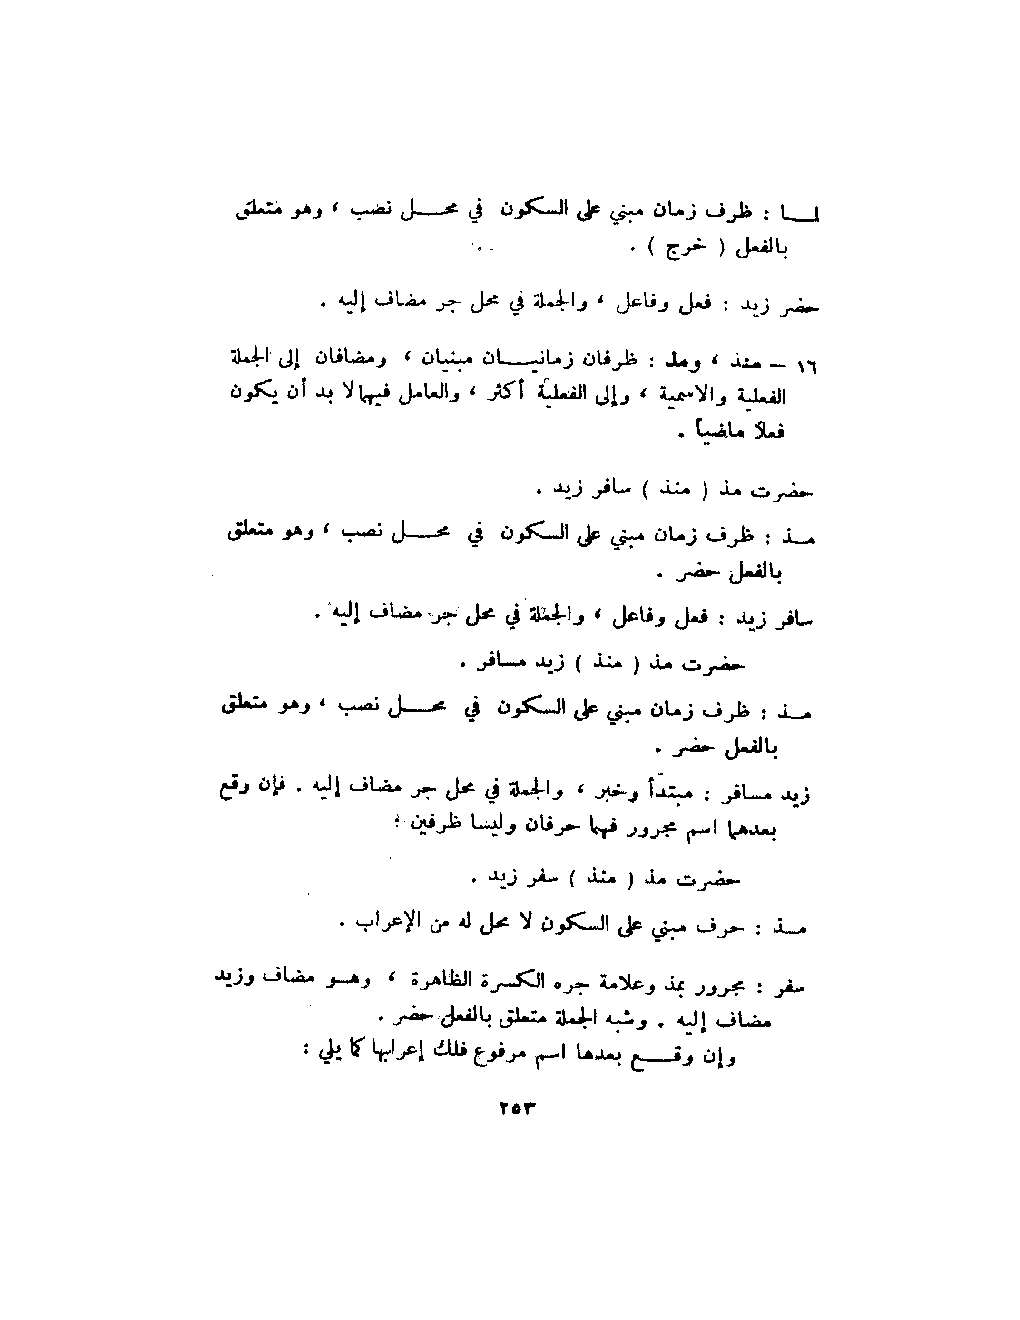 لمــا : ظرف زمان مبني على السكون في محـــل نصب ، وهو متعلق
بالفعل ( خرج ) .
حضر زيد : فعل وفاعل ، والجملة في محل جر مضاف إليه .
١٦ – منذ ، ومذ : ظرفان زمانيـــان مبنيان ، ومضافان إلى الجملة
الفعلية والاسمية ، وإلى الفعلية أكثر ، والعامل فيهما لا بد أن يكون
فعلاً ماضياً .
حضرت مذ ( منذ ) سافر زيد .
مــذ : ظرف زمان مبني على السكون في محـــل نصب ، وهو متعلق
بالفعل حضر .
سافر زيد : فعل وفاعل ، والجملة في محل جر مضاف إليه .
حضرت مذ ( منذ ) زيد مسافر .
مــذ : ظرف زمان مبني على السكون في محـــل نصب ، وهو متعلق
بالفعل حضر .
زيد مسافر : مبتدأ وخبر ، والجملة في محل جر مضاف إليه . فإن وقع
بعدهما اسم مجرور فهما حرفان وليسا ظرفين :
حضرت مذ ( منذ ) سفر زيد .
مــذ : حرف مبني على السكون لا محل له من الإعراب .
سفر : مجرور بمذ وعلامة جره الكسرة الظاهرة ، وهــو مضاف وزيد
مضاف إليه . وشبه الجملة متعلق بالفعل حضر .
وإن وقــــع بعدها اسم مرفوع فلك إعرابها كما يلي :
٢٥٣